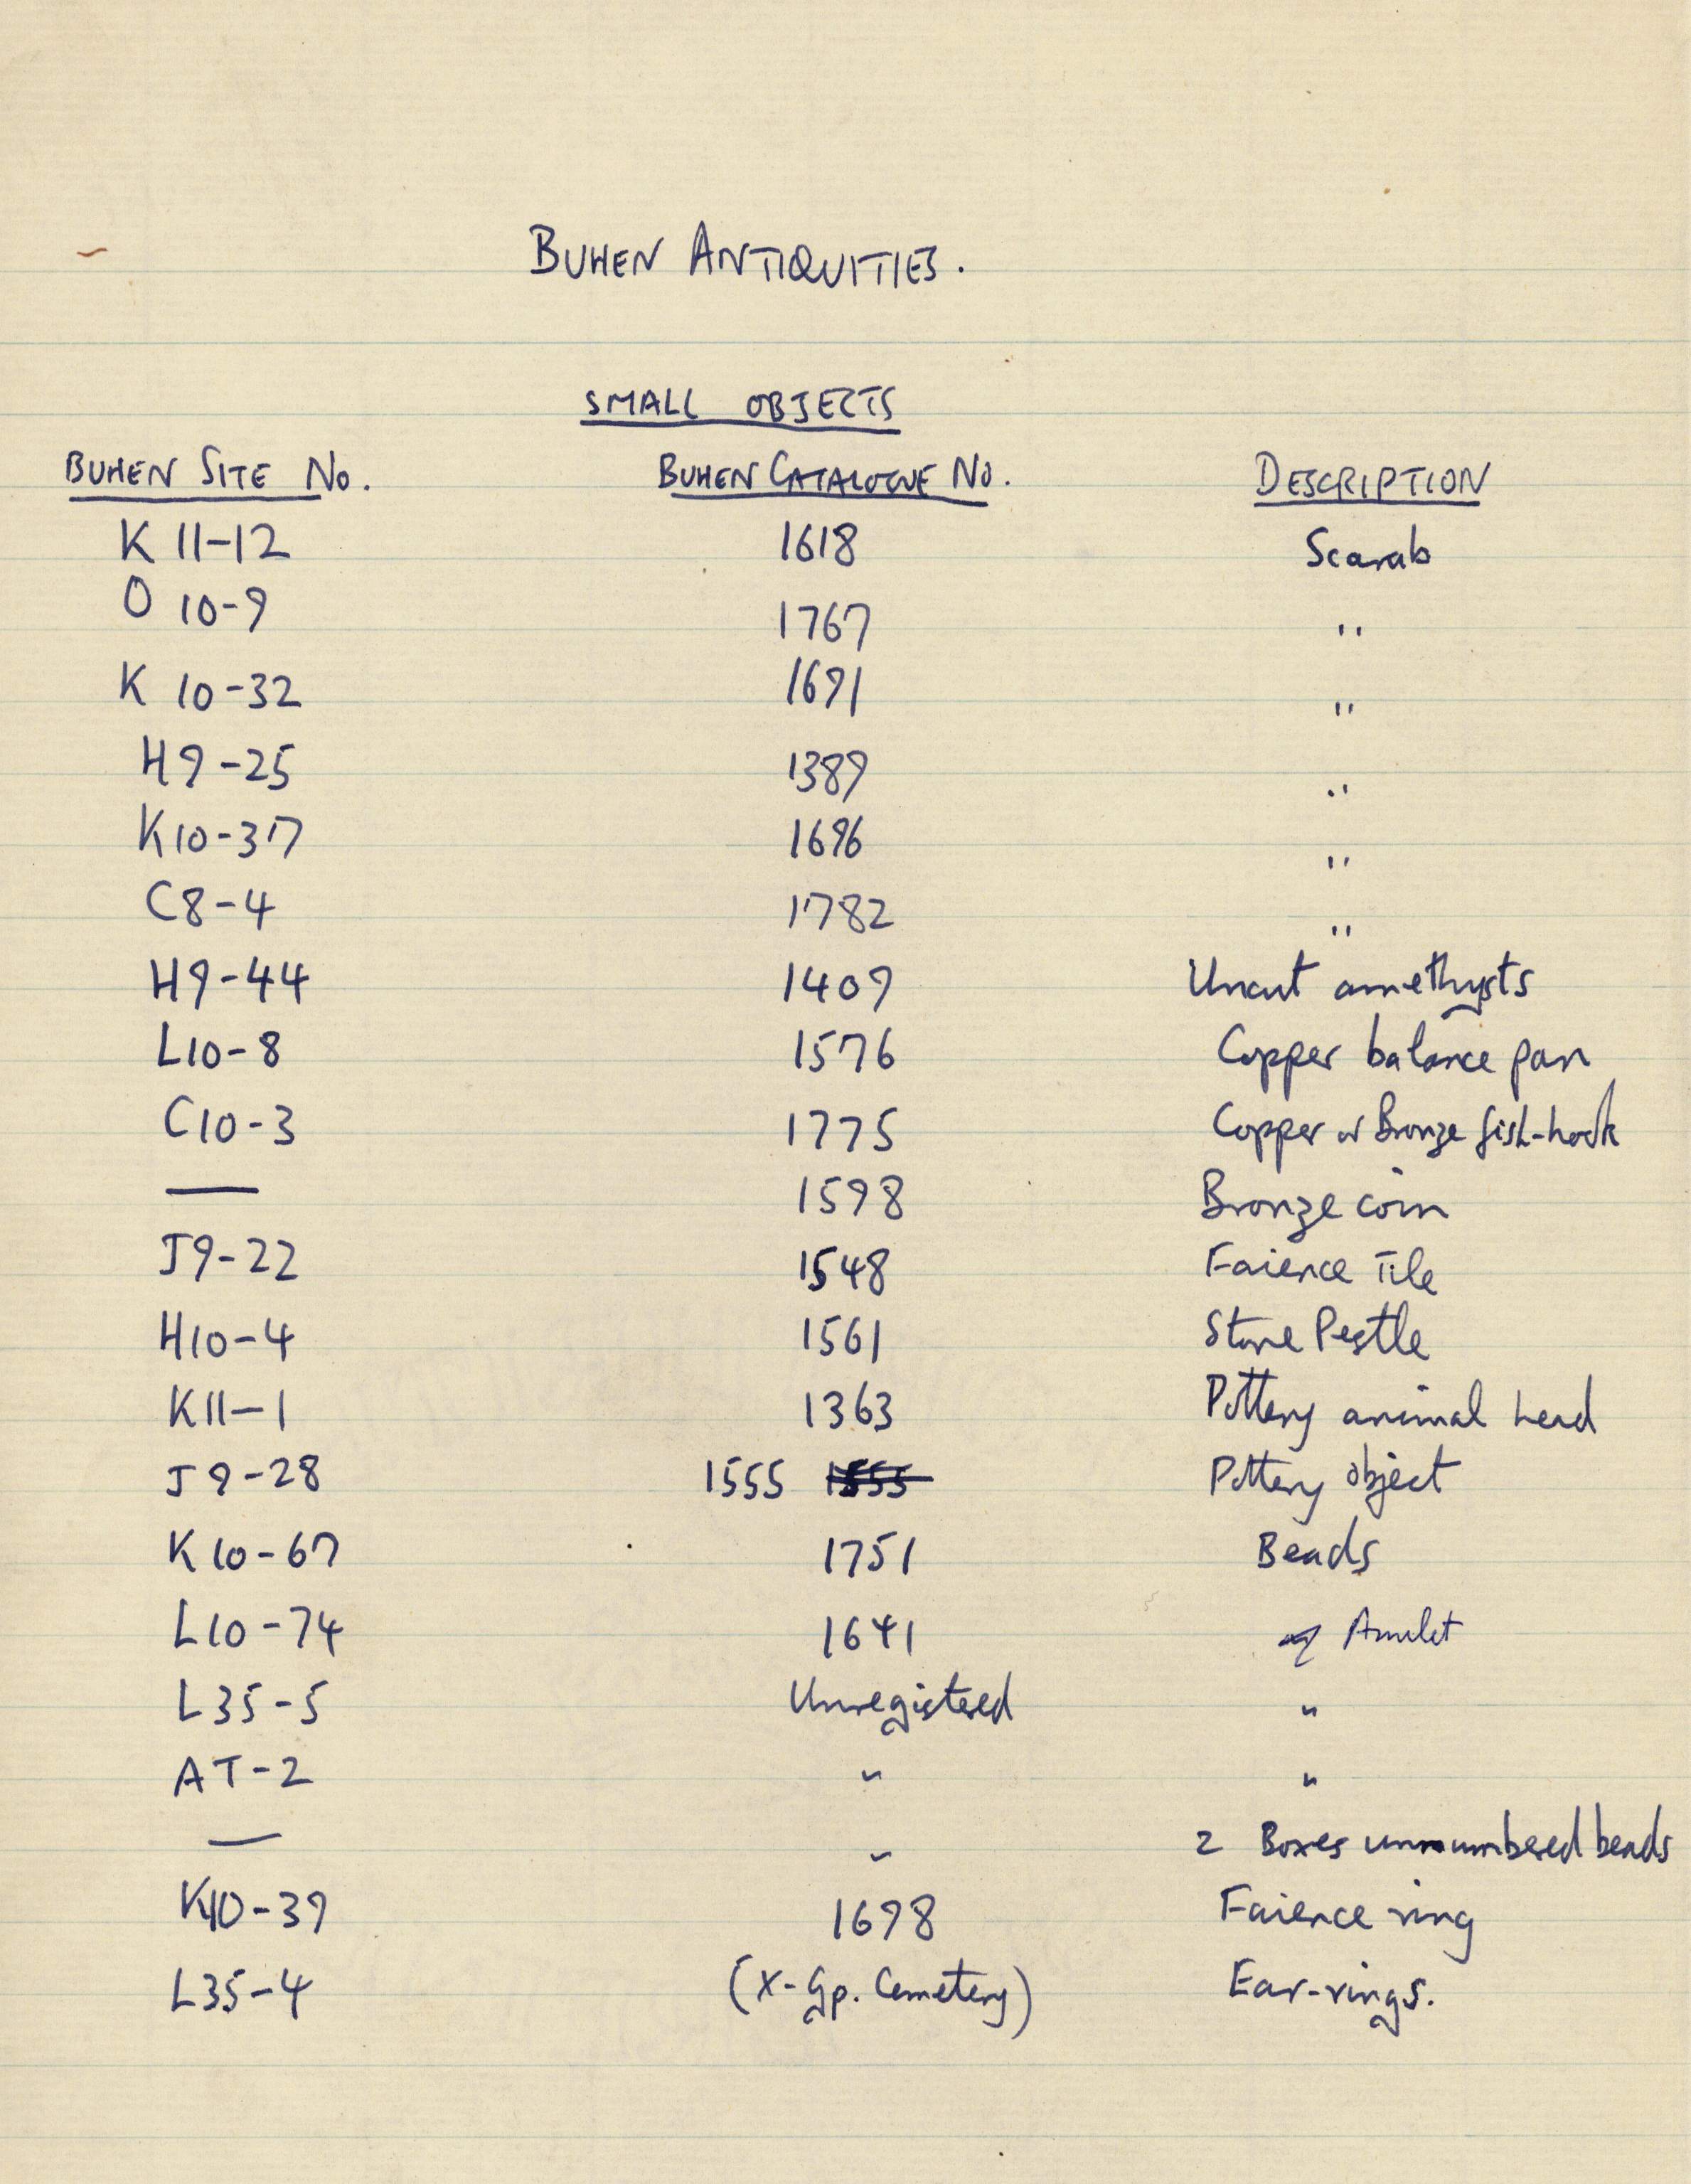 BUHEN ANTIQUITIES.
SMALL OBJECTS
BUHEN SITE No. BUHEN CATALOGUE No. DESCRIPTION
K 11-12 1618 Scarab
O 10-9 1767 "
K 10-32 1691 "
H9-25 1389 "
K10-37 1696 "
C8-4 1782 "
H9-44 1409 Uncut amethysts
L10-8 1576 Copper balance pan
C10-3 1775 Copper or Bronze fish-hook
— 1598 Bronze coin
J9-22 1548 Faience Tile
H10-4 1561 Stone Pestle
K11-1 1363 Pottery animal head
J9-28 1555 1555 Pottery object
K10-67 1751 Beads
L10-74 1641 Amulet
L35-5 Unregistered "
AT-2 " "
— " 2 Boxes unnumbered beads
K10-39 1698 Faience ring
L35-4 (X-Gp. Cemetery) Ear-rings.